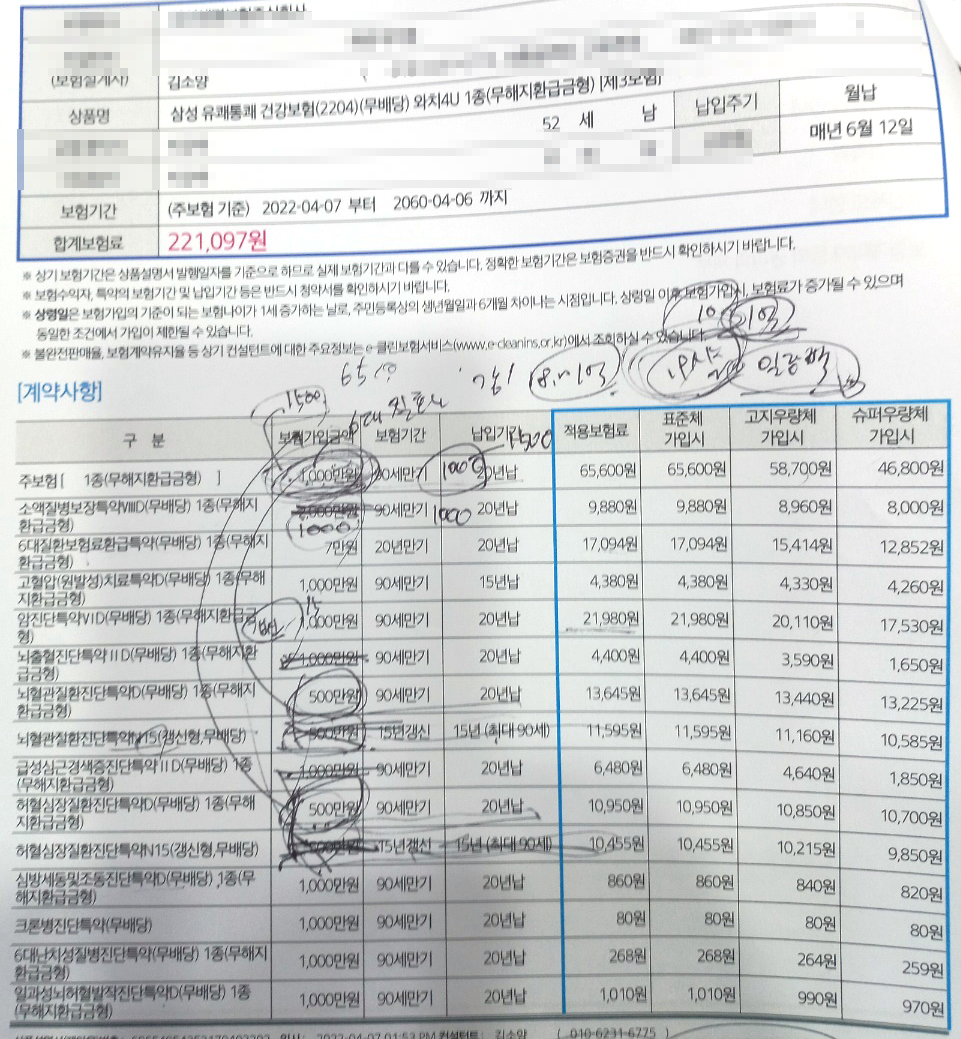 (보험설계사) 김소양
상품명 삼성 유쾌통쾌 건강보험(2204)(무배당) 와치4U 1종(무해지환급금형) [제3보험] 납입주기 월납
52 세 남 매년 6월 12일
보험기간 (주보험 기준) 2022-04-07 부터 2060-04-06 까지
합계보험료 221,097원
※ 상기 보험기간은 상품설명서 발행일자를 기준으로 하므로 실제 보험기간과 다를 수 있습니다. 정확한 보험기간은 보험증권을 반드시 확인하시기 바랍니다.
※ 보험수익자, 특약의 보험기간 및 납입기간 등은 반드시 청약서를 확인하시기 바랍니다.
※ 상령일은 보험가입의 기준이 되는 보험나이가 1세 증가하는 날로, 주민등록상의 생년월일과 6개월 차이나는 시점입니다. 상령일 이후 보험가입시, 보험료가 증가될 수 있으며
동일한 조건에서 가입이 제한될 수 있습니다.
※ 불완전판매율, 보험계약유지율 등 상기 컨설턴트에 대한 주요정보는 e-클린보험서비스(www.e-cleanins.or.kr)에서 조회하실 수 있습니다.
10 1억
[계약사항]
1500
구 분 보험가입금액 보험기간 납입기간 적용보험료 표준체 가입시 고지우량체 가입시 슈퍼우량체 가입시
주보험 [ 1종(무해지환급금형) ] 1,000만원 90세만기 1000 20년납 65,600원 65,600원 58,700원 46,800원
소액질병보장특약VIIID(무배당) 1종(무해지환급금형) 1000 90세만기 1000 20년납 9,880원 9,880원 8,960원 8,000원
6대질환보험료환급특약(무배당) 1종(무해지환급금형) 7만원 20년만기 20년납 17,094원 17,094원 15,414원 12,852원
고혈압(원발성)치료특약D(무배당) 1종(무해지환급금형) 1,000만원 90세만기 15년납 4,380원 4,380원 4,330원 4,260원
암진단특약VID(무배당) 1종(무해지환급금형) 1,000만원 90세만기 20년납 21,980원 21,980원 20,110원 17,530원
뇌출혈진단특약IID(무배당) 1종(무해지환급금형) 1,000만원 90세만기 20년납 4,400원 4,400원 3,590원 1,650원
뇌혈관질환진단특약D(무배당) 1종(무해지환급금형) 500만원 90세만기 20년납 13,645원 13,645원 13,440원 13,225원
뇌혈관질환진단특약N15(갱신형,무배당) 500만원 15년갱신 15년 (최대 90세) 11,595원 11,595원 11,160원 10,585원
급성심근경색증진단특약IID(무배당) 1종(무해지환급금형) 1,000만원 90세만기 20년납 6,480원 6,480원 4,640원 1,850원
허혈심장질환진단특약D(무배당) 1종(무해지환급금형) 500만원 90세만기 20년납 10,950원 10,950원 10,850원 10,700원
허혈심장질환진단특약N15(갱신형,무배당) 500만원 15년갱신 15년 (최대 90세) 10,455원 10,455원 10,215원 9,850원
심방세동및조동진단특약D(무배당) 1종(무해지환급금형) 1,000만원 90세만기 20년납 860원 860원 840원 820원
크론병진단특약(무배당) 1,000만원 90세만기 20년납 80원 80원 80원 80원
6대난치성질병진단특약(무배당) 1종(무해지환급금형) 1,000만원 90세만기 20년납 268원 268원 264원 259원
일과성뇌허혈발작진단특약D(무배당) 1종(무해지환급금형) 1,000만원 90세만기 20년납 1,010원 1,010원 990원 970원
2022-04-07 01:53 PM 컨설턴트: 김소양 ( 010-6231-6775 )